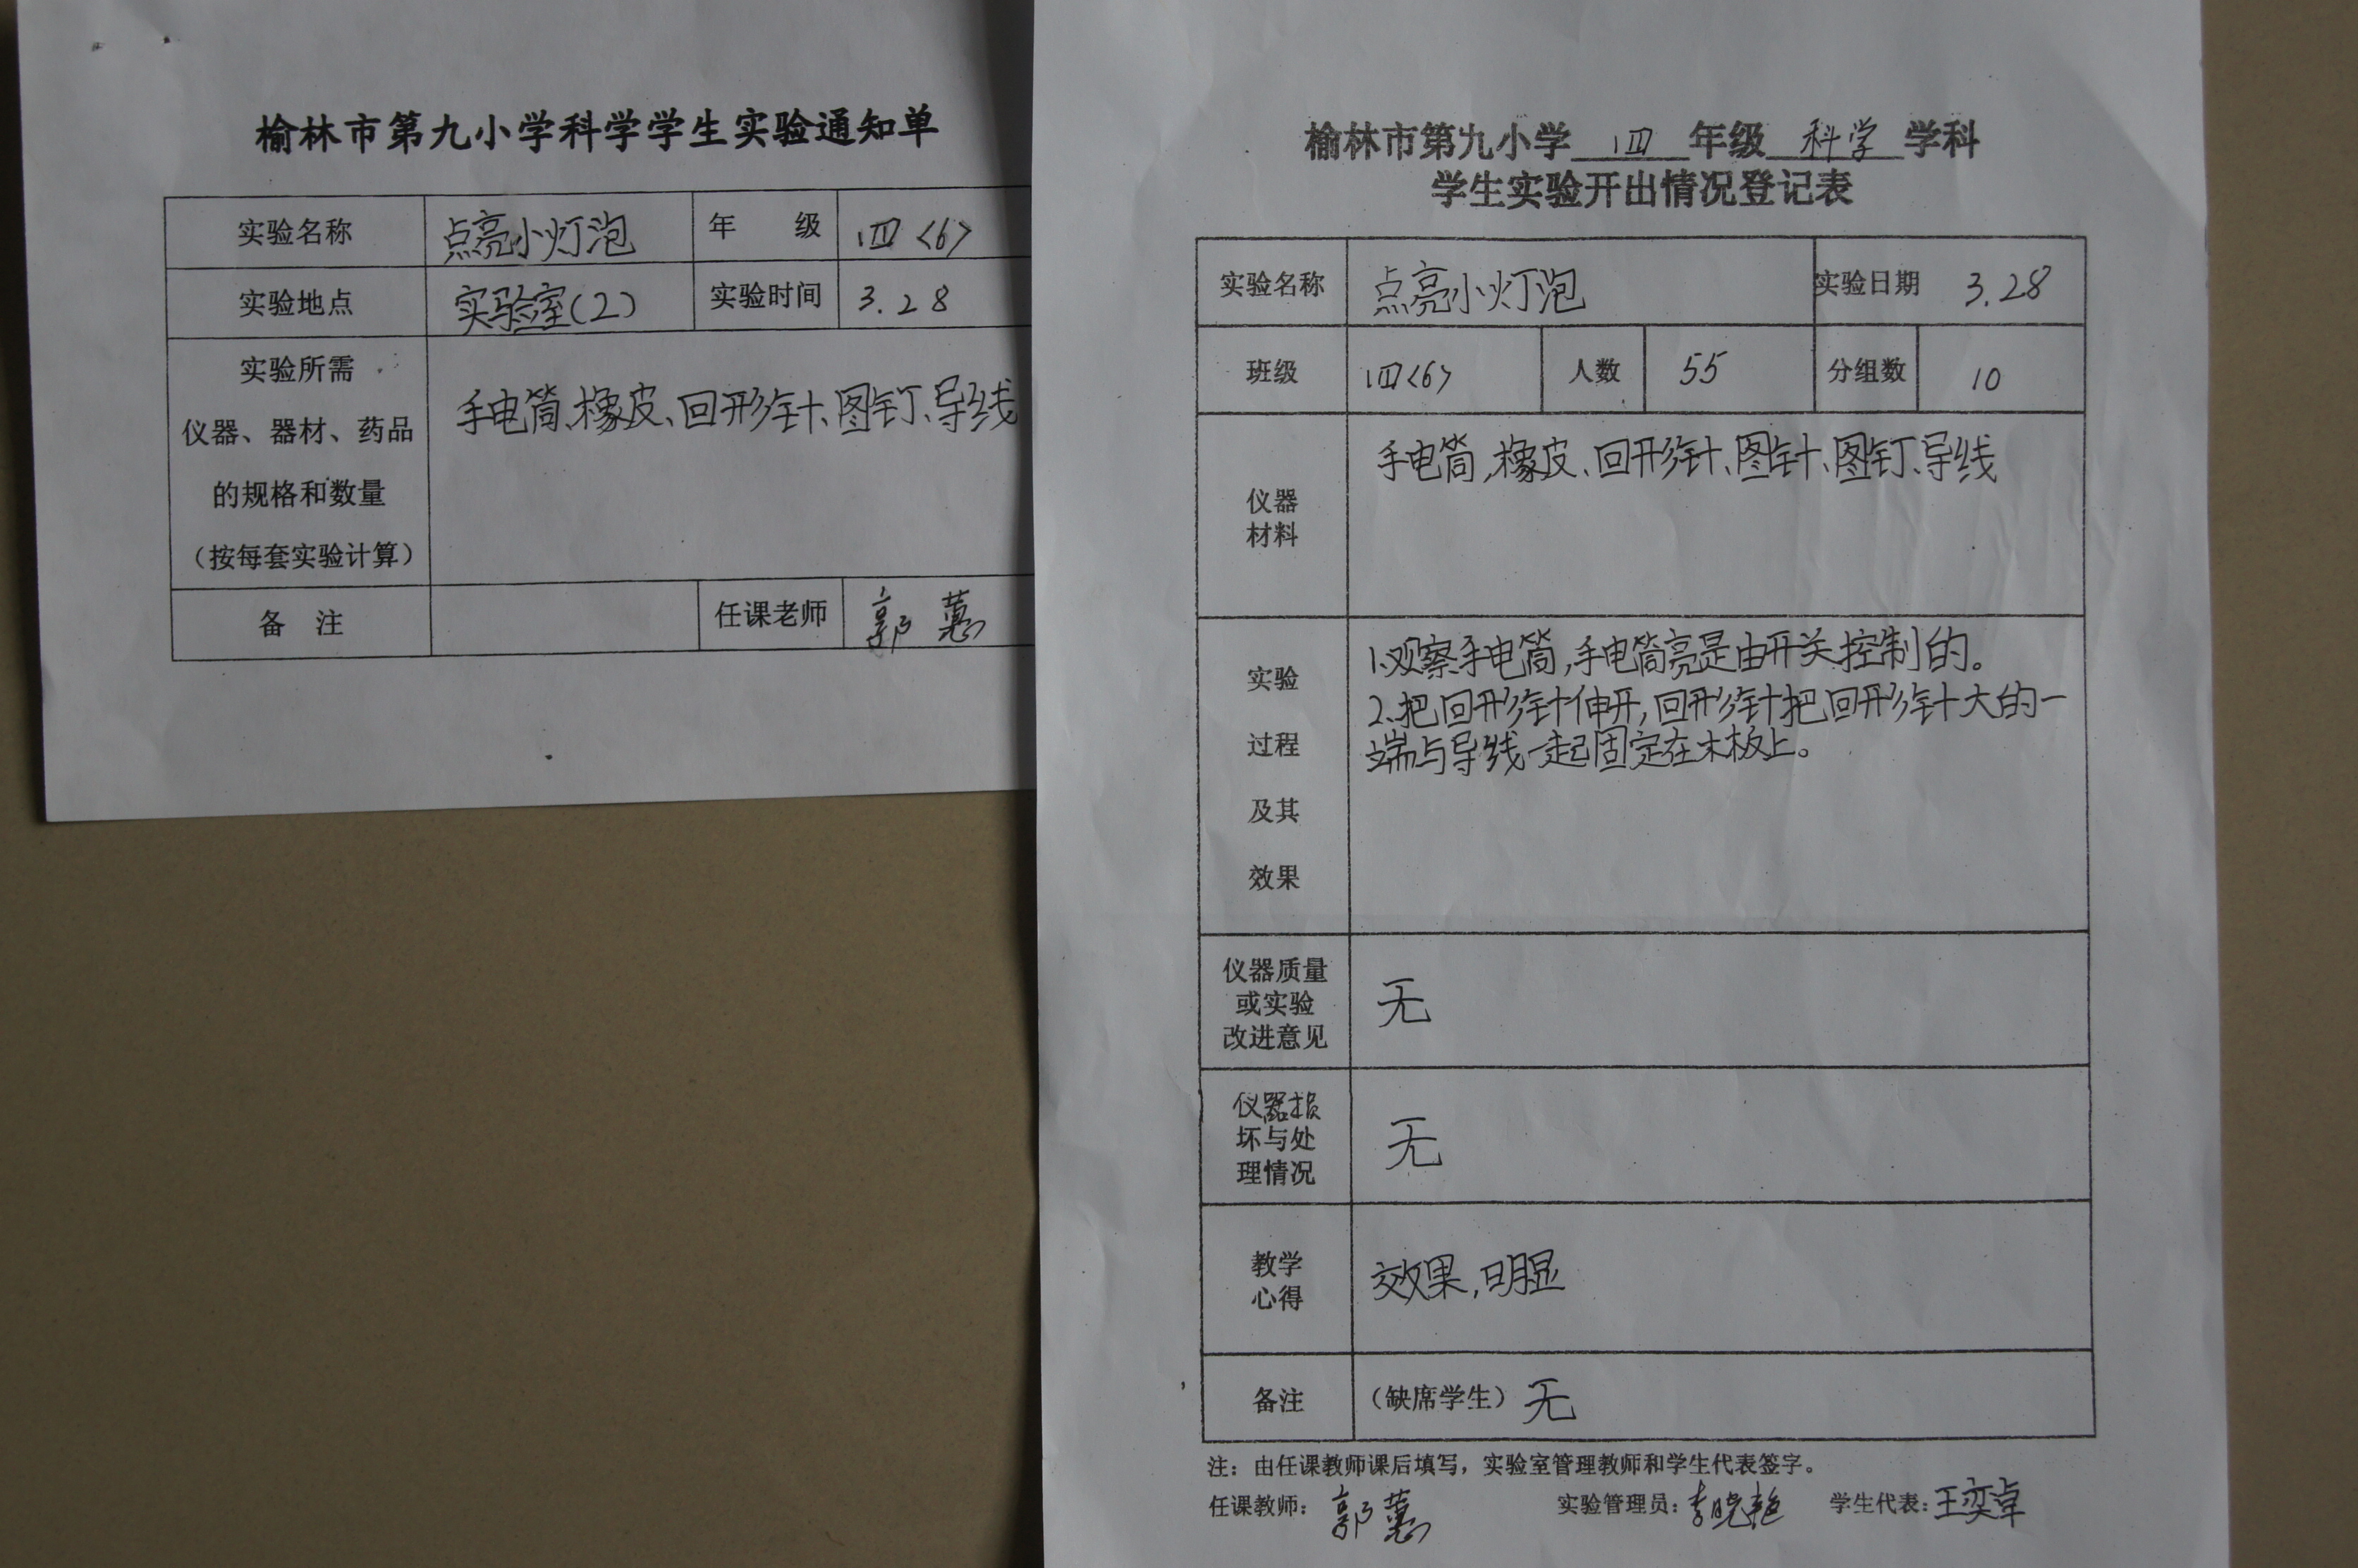 榆林市第九小学科学学生实验通知单
实验名称 点亮小灯泡 年 级 四<6>
实验地点 实验室(2) 实验时间 3.28
实验所需
仪器、器材、药品
的规格和数量
（按每套实验计算）
手电筒、橡皮、回形针、图钉、导线
备 注 任课老师 郭蕙
榆林市第九小学 四 年级 科学 学科
学生实验开出情况登记表
实验名称 点亮小灯泡 实验日期 3.28
班级 四<6> 人数 55 分组数 10
仪器
材料
手电筒,橡皮、回形针、图针、图钉、导线
实验
过程
及其
效果
1.观察手电筒,手电筒亮是由开关控制的。
2.把回形针伸开,回形针把回形针大的一
端与导线一起固定在木板上。
仪器质量
或实验
改进意见
无
仪器损
坏与处
理情况
无
教学
心得
效果,明显
备注 （缺席学生）无
注：由任课教师课后填写，实验室管理教师和学生代表签字。
任课教师：郭蕙 实验管理员：李晓艳 学生代表：王奕卓